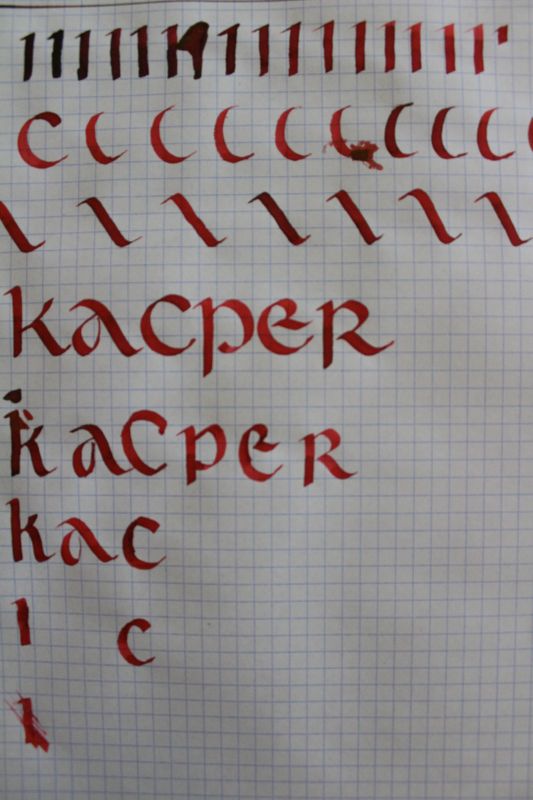 C C C C C C C C C
KACPER
KACPER
KAC
I C
I